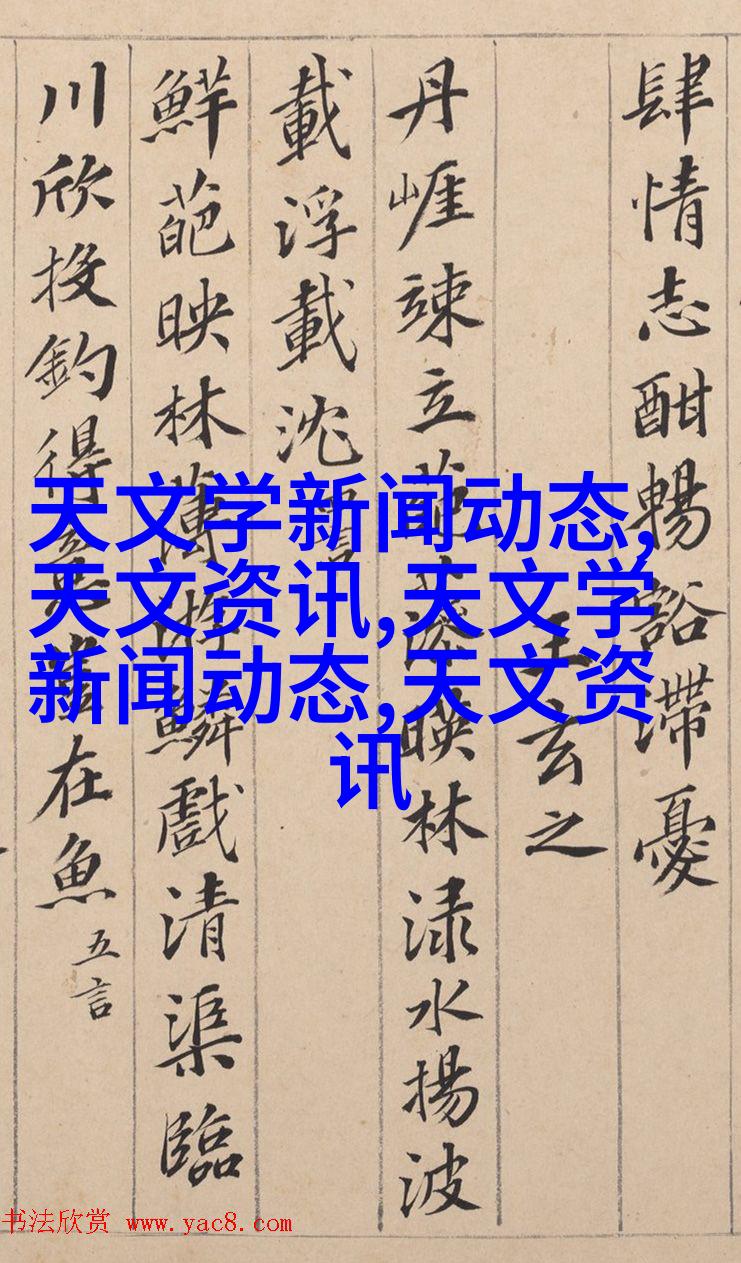 肆情志酣暢豁滯憂
王玄之
丹崕竦立葩藻暎林淥水揚波
載浮載沈
鮮葩映林薄游鱗戲清渠臨
川欣投釣得意豈在魚 五言
天文学新闻动态,
天文资讯,天文学
新闻动态,天文资
讯
书法欣赏 www.yac8.com